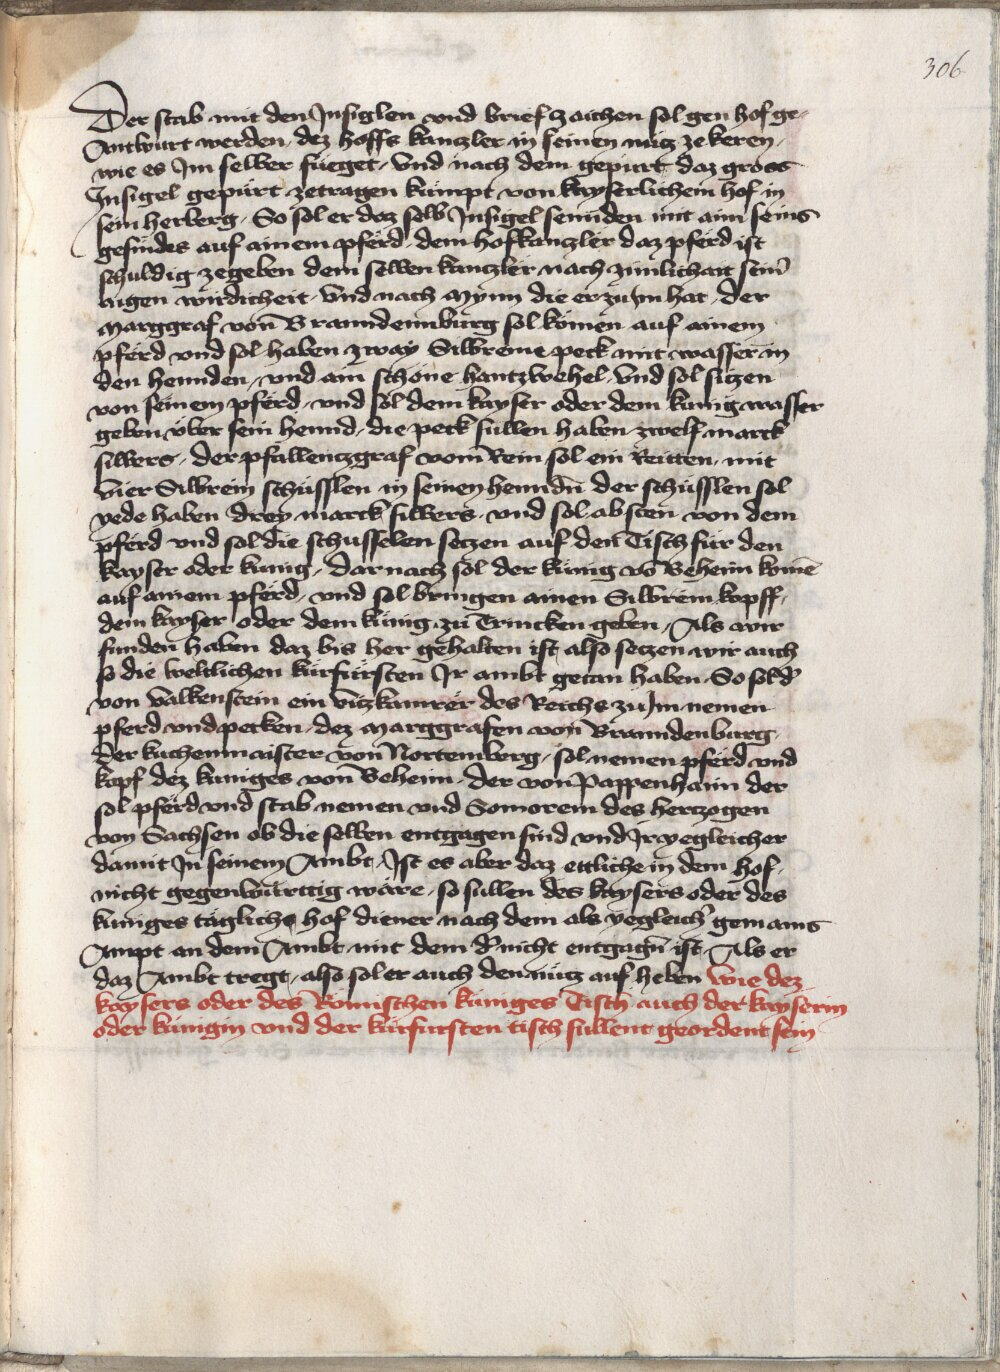 306
Der stab mit den Insiglen vnd brief zaichen sol gen hof ge-
Antwurt werden, dez hoffs kanczler in seinen nucz ze keren,
wie es Im selber fueget, Vnd nach dem gepürt daz gross
Insigel gepürt zetragen kumpt von kayserlichem hof in
sein herberg, So sol er daz selb Insigel sennden mit aim seins
gesindes auf ainem pferd, dem hofkanczler daz pferd ist
schuldig zegeben dem selben kanczler nach zimlichait seinr
aigen wirdicheit, Vnd nach mynn die er zu Im hat, der
Marggraf von Branndemburg sol komen auf ainem
pferd vnd sol haben zway Silbreine peck mit wasser in
den hennden, vnd ain schone hantzwehel, Vnd sol siczen
von seinem pferd, vnd sol dem kayser oder dem kunig wasser
geben über sein hennd, die peck sullen haben zwelf marck
silbers, der pfallenczgraf vom Rein sol ein Reitten, mit
vier Silbrein schüsslen in seinen henndn̄ der schüsslen sol
yede haben drey marck silbers, vnd sol absten von dem
pferd vnd sol die schusselen seczen auf den Tisch für den
kayser oder kunig, dar nach sol der künig vō Beheim komē
auf ainem pferd, vnd sol bringen ainen Silbrein kopff,
dem kayser oder dem künig zu Trincken geben, Als wir
funden haben daz bis her gehalten ist, also seczen wir auch
so die weltlichen kürfürsten Ir ambt getan haben, So sol d'
von Valkenstein ein vitzkamrer des Reichs zu Im nemen
pferd vnd pecken, dez Marggrafen von Branndenburg,
der kuchenmaister von Nortemberg, sol nemen pferd vnd
kopf dez kuniges von Beheim, der von Pappenhaim der
sol pferd vnd stab nemen vnd Somorein des herczogen
von Sachsen ob die selben entgagen sind vnd Ir yegleicher
damit In seinem Ambt, Ist es aber daz ettliche in dem hof,
nicht gegenwürttig wäre, so sullen des kaysers oder des
kuniges täglich hof diener nach dem als yegleich' gemains
Ampt an dem Ambt mit dem d' nicht entgagn̄ ist, Als er
daz Ambt tregt, also sol er auch den nucz auf heben wie dez
kaysers oder des Römischen küniges Tisch auch der kayserin
oder künigin vnd der kürfursten tisch sullent geordent sein